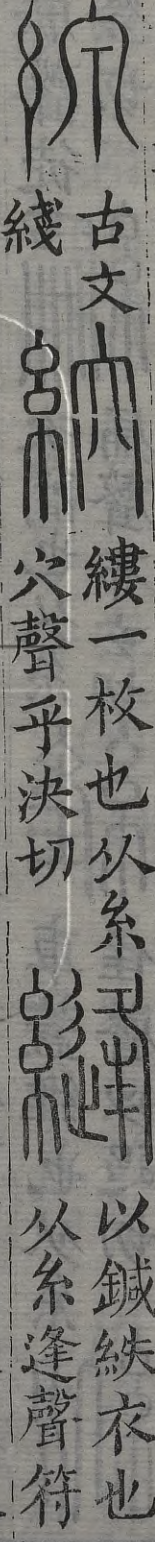 線
古文
綫
縷一枚也从糸
穴聲乎決切
縫
以鍼紩衣也
从糸逢聲符